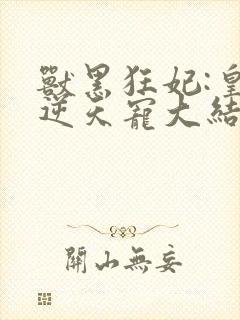 獸黑狂妃:皇
逆天寵大結
關山無妄